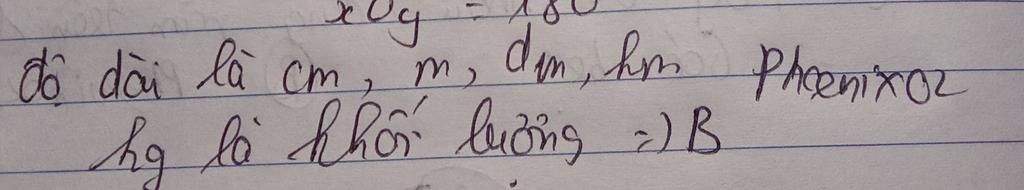 xOy = 180
độ dài là cm, m, dm, hm Phoenix02
hg là khối lượng => B